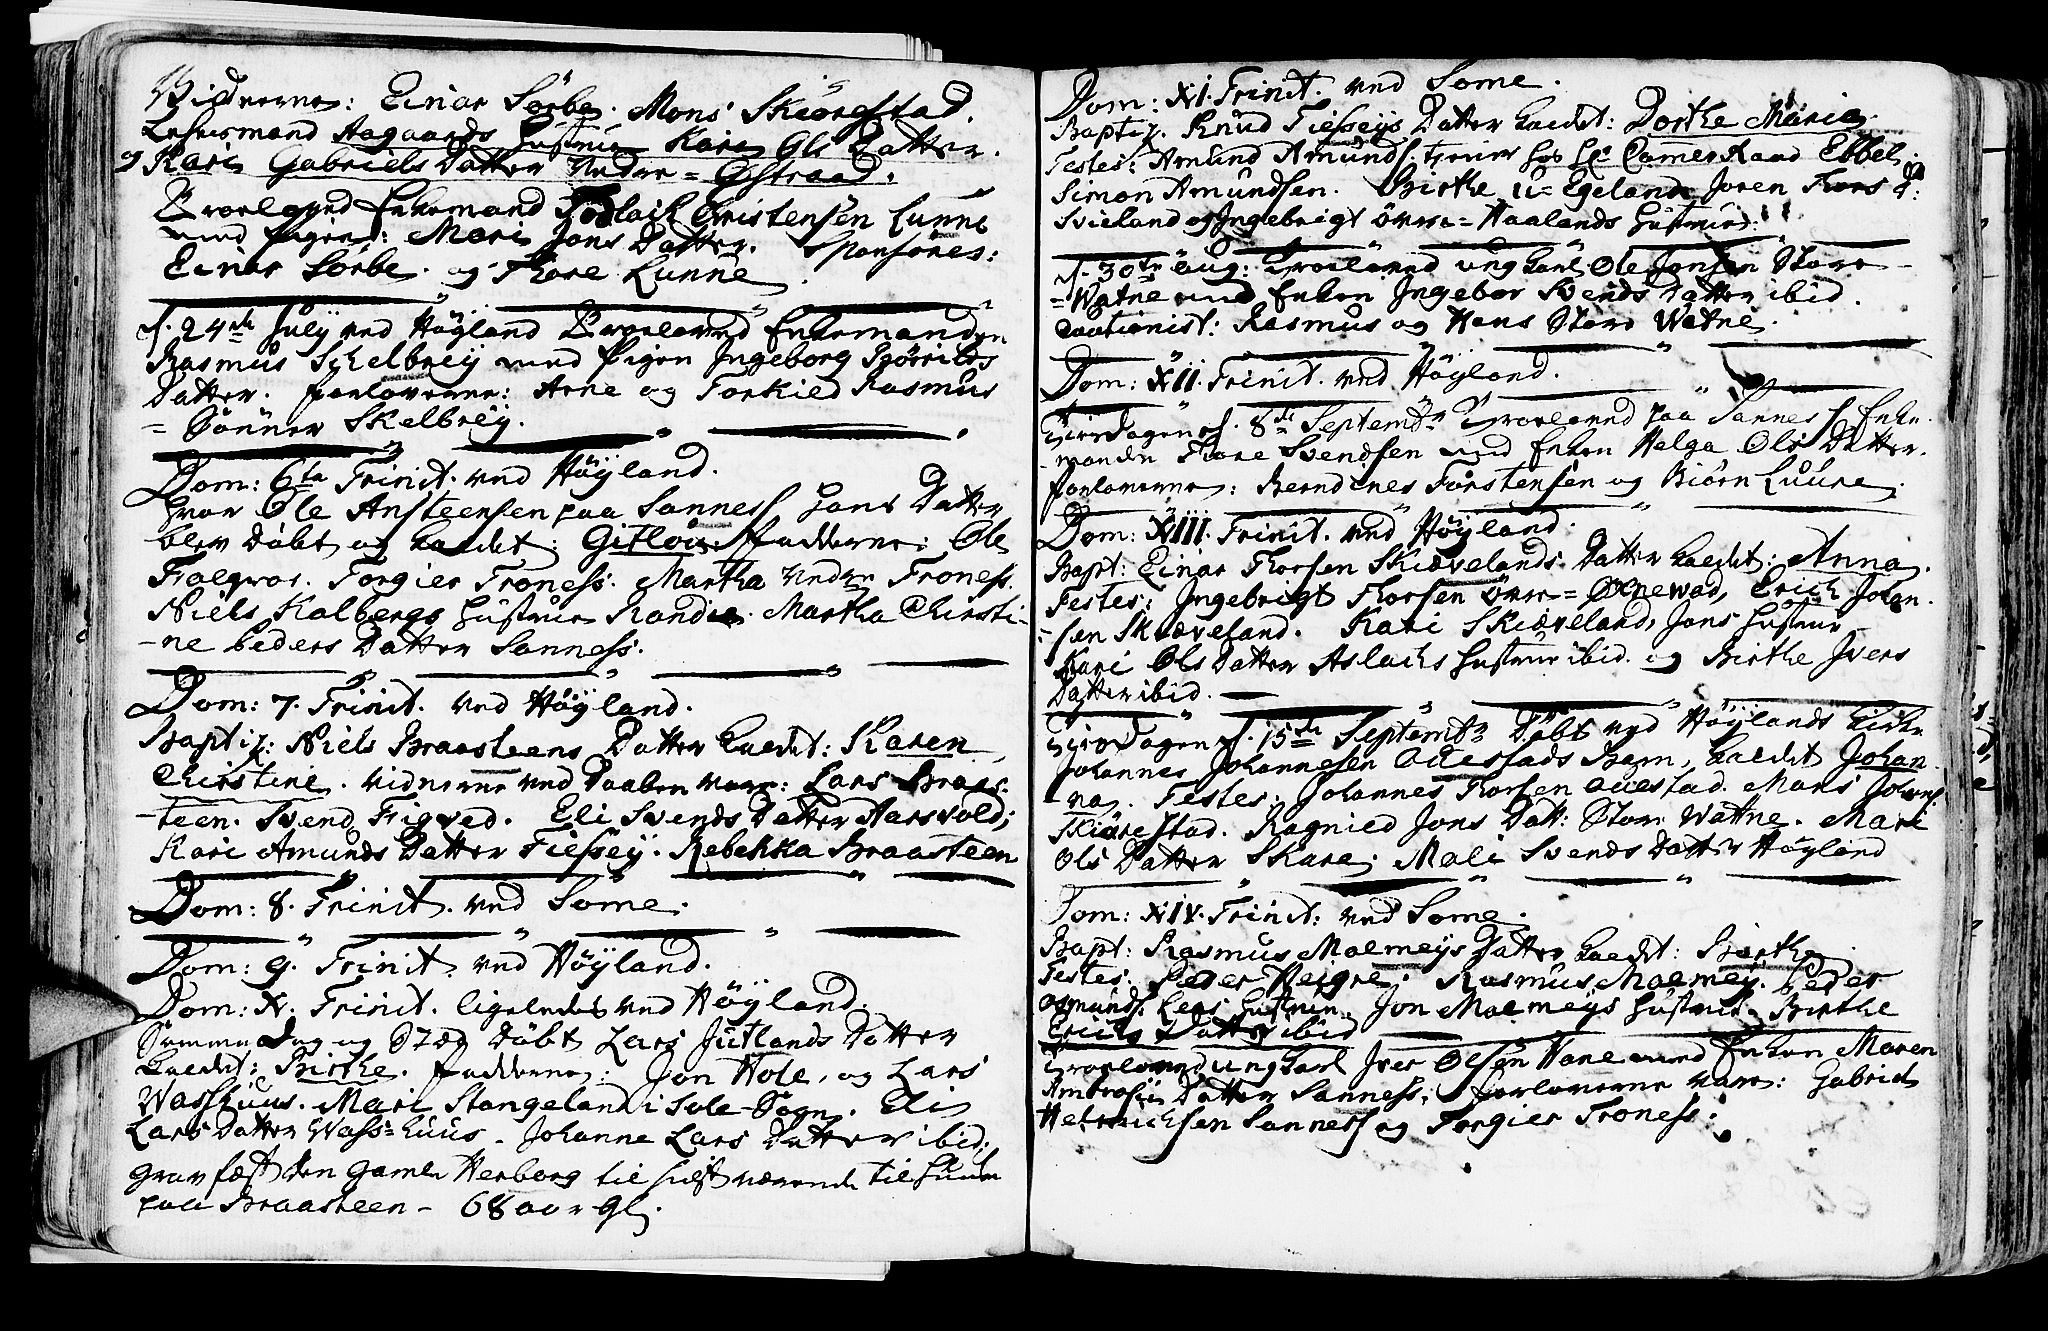 Vidnerne: Einar Sørbø. Mons Skiørestad.
Lehnsmand Aagaards Hustrue Karen Ols Datter.
og Kari Gabriels Datter Nedre = Ostraad.
Troelovnd Enkemand Christensen Lunne
med Pigen: Mari Jons Datter. Sponsores:
Einar Sørbø. og Tore Lunne.
d. 24de Julij ved Høyland Troelovnd Enkemanden
Rasmus Schelbrey med Pigen Ingeborg Børrilds
Datter. forloverne: Arne og Torkied Rasmus
= Sønner Skelbrey.
Dom: 6ta Trinit. ved Høyland.
hvor Ole Ansteensen paa Sanness hans Datter
blev døbt og kaldet: Gitlou. Fadderne: Ole
Torgier Troness. Martha Nedre Troness.
Niels Kalbergs Hustrue Randie. Martha Christi-
-ne Peders Datter Sanness.
Dom: 7. Trinit. ved Høyland.
Baptiz: Niels Braasteens Datter kaldet: Karen
Christine. Vidnerne ved Daaben vare: Lars Braas-
-teen. Svend Figved. Eli Svends Datter Aarsvold;
Kari Amunds Datter Tiessey. Rebekka Braasteen
Dom: 8. Trinit. ved Some.
Dom: 9. Trinit. ved Høyland.
Dom: X. Trinit. ligeledes ved Høyland.
Samme Dag og Stæd døbt Lars Jutlands Datter
kaldet: Birthe. Fadderne: Jon Hole, og Lars
Wasshuus. Mari Stangeland i Sole-Sogn. Eli
Lars Datter Wass=huus. Johanne Lars Datter ibid;
Gravfæst den gamle Herborg til sidst værende til huuse
paa Braasteen - 68 aar gl.
Dom: XI. Trinit. ved Some.
Baptiz. Knud Tiesseys Datter kaldet: Dorthe Maria.
Testes: Amund Amunds. tiener hos Hr Camer Raad Ebbel.
Simon Amundsen. Birthe U=Egeland, Joren Tores D:
Svieland og Ingebrigt øvre=Haalands Hustrue.
d. 30te Aug: Troelovnd ung karl Ole Jonsen Store-
=Watne med Enken Ingebor Svends Datter ibid.
Cautionist: Rasmus og Hans Store Watne.
Dom: XII. Trinit. ved Høyland.
Tirsdagen d. 8de Septembr Troelovnd paa Sanness Enke-
-manden Tore Svendsen med Enken Helga Ols Datter.
forloverne: Berndines Torstensen og Biørn Luura.
Dom: XIII. Trinit. ved Høyland:
Bapt: Einar Thorsen Skievelands Datter kaldet: Anna.
Testes: Ingebrigt Thorsen øvre=Ørnewad, Erich Johan-
-sen Skiæveland. Kari Skiæveland, Jons Hustrue
Kari Ols Datter Aslachs Hustrue ibid. og Birthe Ivers
Datter ibid.
Tirsdagen d. 15de Septembr døbt ved Høylands Kirke
Johannes Johannesen Auestads Barn, kaldet Johan-
-na. Testes: Johannes Thorsen Auestad. Mons Johans:
Skiørestad. Ragnied Jons Datt: Store Wattne. Mari
Ols Datter Skare. Mali Svends Datter Høyland
Dom: XIV. Trinit: ved Some.
Bapt: Rasmus Malmeys Datter kaldet: Birthe
Testes: Peder Heigre. Rasmus Malmey. Peder
Osmunds. Hustrue. Jon Malmeys Hustrue. Birthe
Erichs Datter ibid
Troelovnd ung karl Iver Olsen Hane med Enken Maren
Ambrosii Datter Sanness; forloverne vare: Gabriel
Henrichsen Sanness og Torgier Troness: